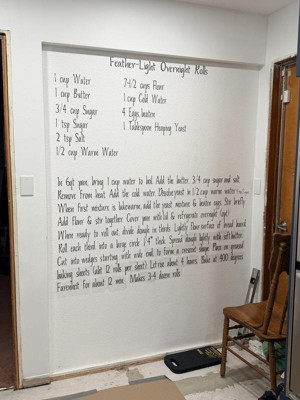 Feather-Light Overnight Rolls
1 cup Water
1 cup Butter
3/4 cup Sugar
1 tsp Sugar
2 tsp Salt
1/2 cup Warm Water
7-1/2 cups Flour
1 cup Cold Water
4 Eggs beaten
1 Tablespoon Heaping Yeast
In 6qt pan, bring 1 cup water to boil. Add the butter, 3/4 cup sugar and salt.
Remove from heat. Add the cold water. Dissolve yeast in 1/2 cup warm water
When first mixture is lukewarm, add the yeast mixture & beaten eggs. Stir briefly.
Add flour & stir together. Cover pan with lid & refrigerate overnight
When ready to roll out, divide dough in thirds. Lightly flour surface of bread board.
Roll each third into a large circle 1/4" thick. Spread dough lightly with soft butter.
Cut into wedges starting with wide end, to form a crescent shape. Place on greased
baking sheets (abt 12 rolls per sheet). Let rise about 4 hours. Bake at 400 degrees
Farenheit for about 12 min. Makes 3-4 dozen rolls.